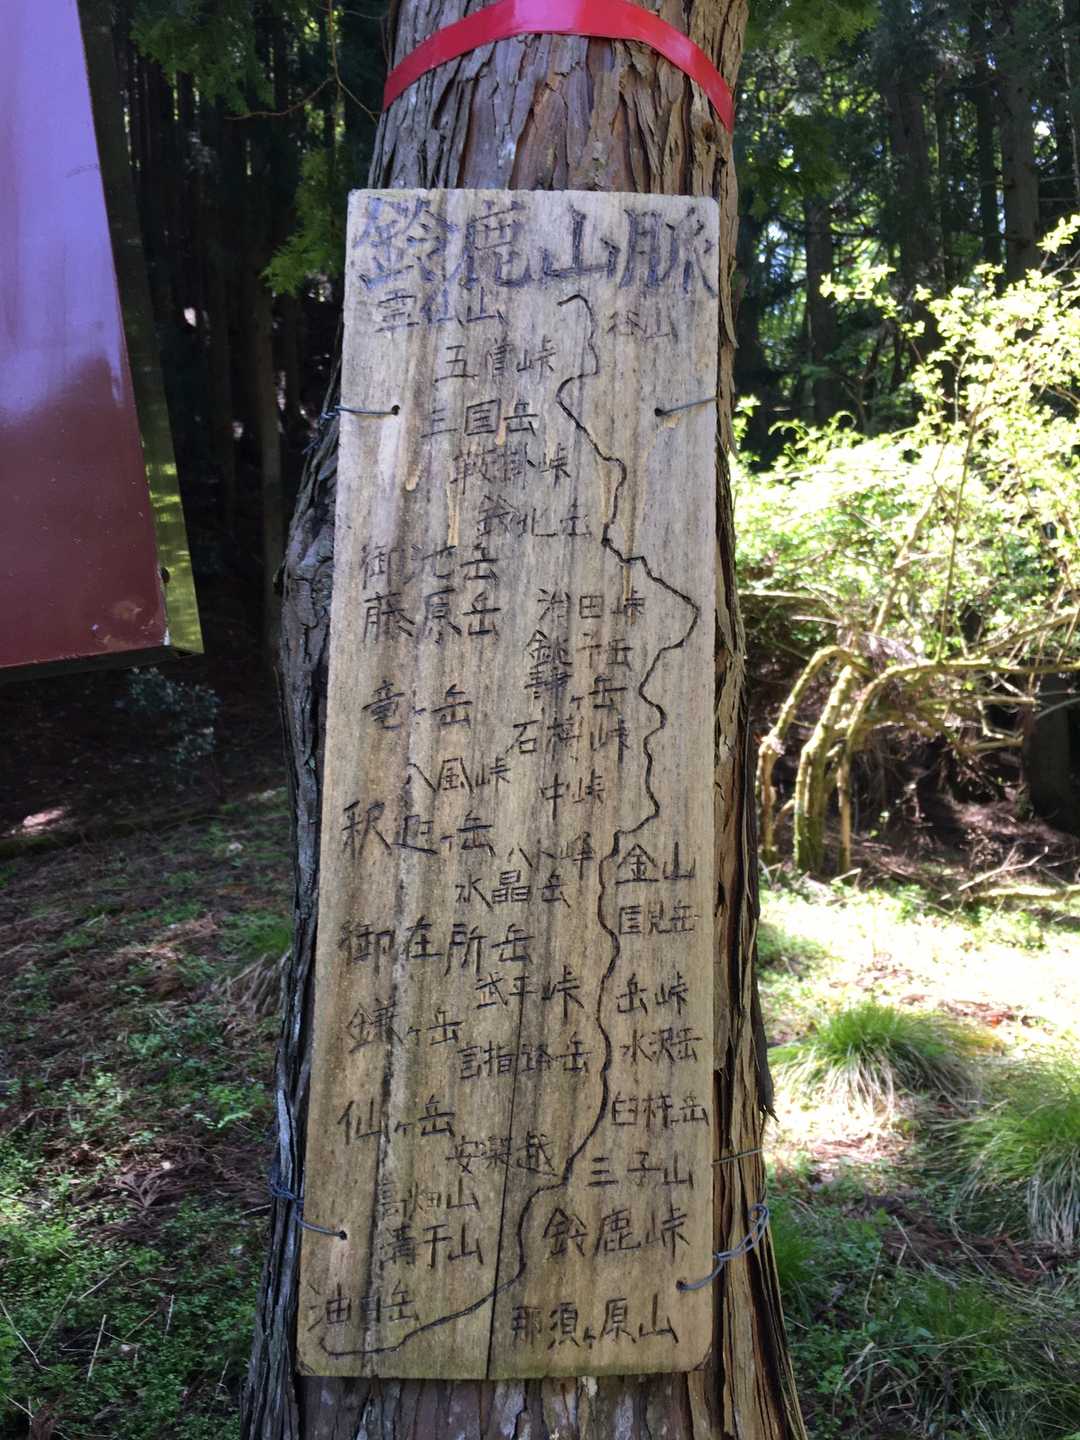 鈴鹿山脈
霊仙山
谷山
五僧峠
三国岳
鞍掛峠
鈴北岳
御池岳
藤原岳
治田峠
銚子岳
静ヶ岳
竜ヶ岳
石榑峠
八風峠
中峠
釈迦ヶ岳
八ト峠
金山
水晶岳
国見岳
御在所岳
武平峠
岳峠
鎌ヶ岳
水沢岳
言指路岳
仙ヶ岳
臼杵岳
安楽越
三子山
高畑山
鈴鹿峠
溝干山
油日岳
那須ヶ原山